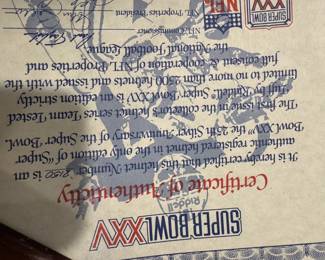 SUPER BOWL XXV
Riddell
Certificate of Authenticity
It is hereby certified that helmet Number is an
authentic registered helmet in the only edition of "Super
Bowl XXV" Silver, the 25th Anniversary of the Super Bowl.
The first issue in the collector's series helmet "Team Tested
Tuff by Riddell". Super Bowl XXV is an edition strictly
limited to no more than 2500 helmets and issued with the
full consent & cooperation of NFL Properties and
the National Football League.
NFL Commissioner
NFL Properties President
NFL
SUPER BOWL
XXV